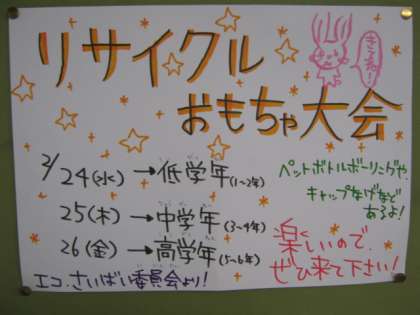 リサイクル
おもちゃ大会
きてね!
2/24(水)→低学年(1~2年)
25(木)→中学年(3~4年)
26(金)→高学年(5~6年)
ペットボトルボーリングや
キャップなげなど
あるよ!
楽しいので、
ぜひ来て下さい!
エコ、さいばい委員会より!